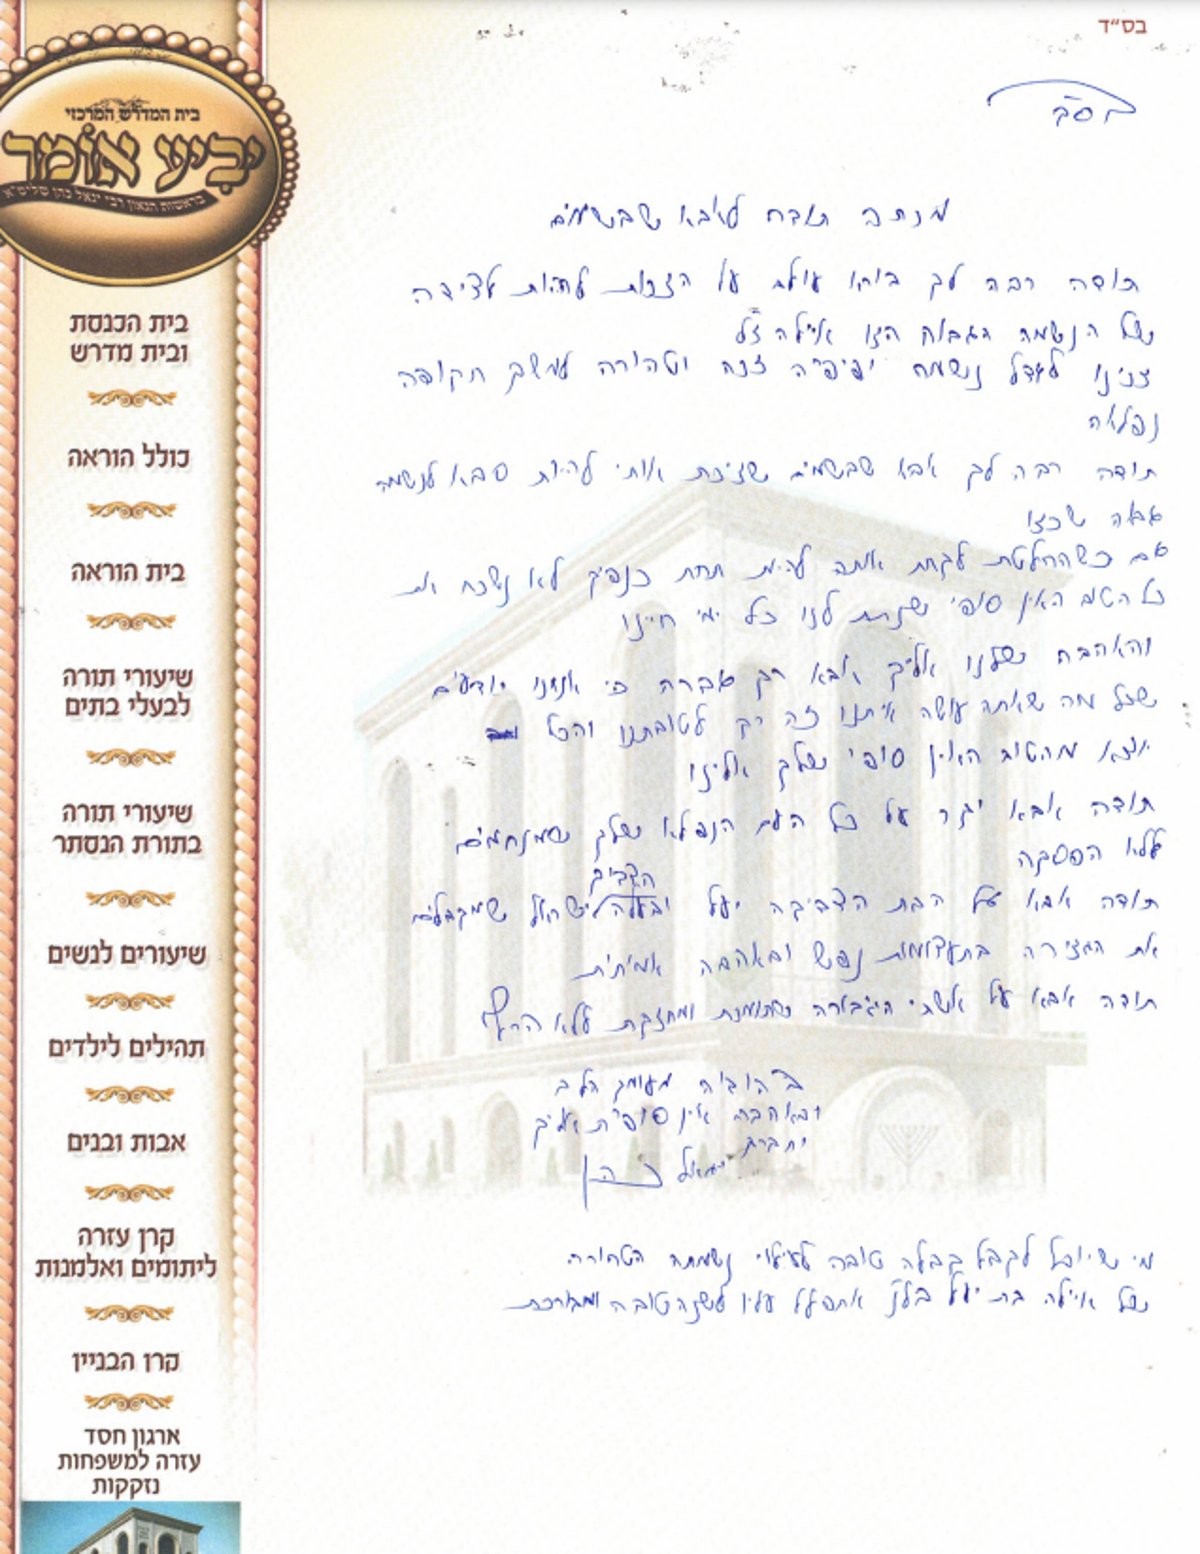 בס״ד
בית המדרש המרכזי
יביע אומר
בראשות הגאון רבי יגאל כהן שליט״א
בית הכנסת
ובית מדרש
כולל הוראה
בית הוראה
שיעורי תורה
לבעלי בתים
שיעורי תורה
בתורת הנסתר
שיעורים לנשים
תהילים לילדים
אבות ובנים
קרן עזרה
ליתומים ואלמנות
קרן הבניין
ארגון חסד
עזרה למשפחות
נזקקות
מנחה תודה לאבא שבשמים
תודה רבה לך בורא עולם על הזכות להיות
של הנשמה הגבוה הזו איילה ז״ל
זכינו לגדל נשמה יפיפיה זכה וטהורה למשך תקופה
נפלאה
תודה רבה לך אבא שבשמים שזיכת אותי להיות סבא לנשמה
שכזו
גם כשהחלטת לקחת אותה להיות תחת כנפיך לא נשכח את
כל הטוב האין סופי שנתת לנו כל ימי חיינו
והאהבה שלנו אליך אבא רק גברה כי אנחנו יודעים
שכל מה שאתה עושה איתנו זה רק לטובתנו והכל
יוצא מהטוב האין סופי שלך אלינו
תודה אבא יקר על כל העם הנפלא שלך שמנחמים
ללא הפסקה
תודה אבא על הבת הצדיקה יעל ובעלה הצדיק ישראל שמקבלים
את הגזירה בתעצומות נפש ובאהבה אמיתית
תודה אבא על אשתי הגיבורה שתומכת ומחזקת ללא הרף
מעומק הלב
ובאהבה אין סופית אליך
יגאל כהן
מי שיוכל לקבל קבלה טובה לעילוי נשמתה הטהורה
של איילה בת יעל אתפלל עליו לשנה טובה ומבורכת